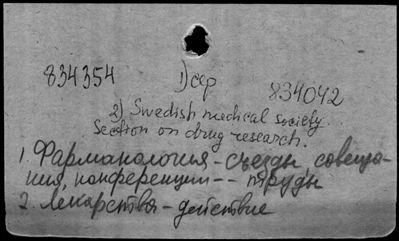 834354 1) сер 834042
2) Swedish medical society.
Section on drug research.
1. Фармакология - съезды, совеща-
ния, конференции -- труды
2. Лекарства - действие